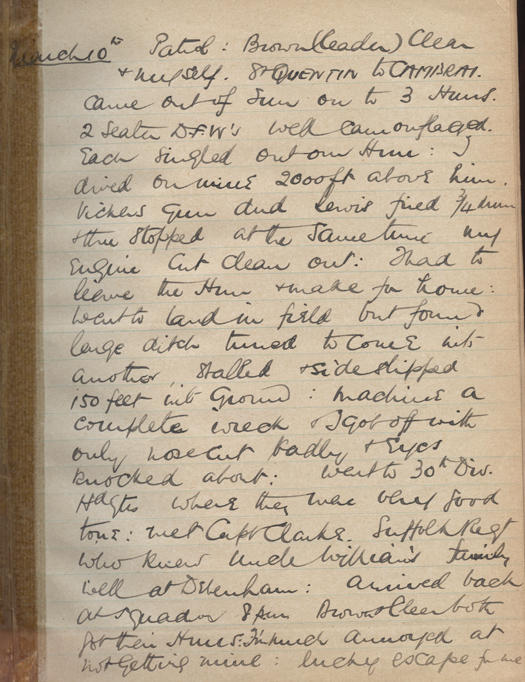 March 10th Patrol: Brown (leader) Clear
+ myself. St QUENTIN to CAMBRAI.
Came out of Sun on to 3 Huns.
2 Seater D.F.W's well camouflaged.
Each singled out our Hun: I
dived on mine 2000ft above him.
Vickers Gun dud Lewis fired 3/4 drum
+ then stopped at the same time my
Engine Cut clean out: I had to
leave the Hun + make for home:
Went to land in field but found
large ditch turned to come into
another, stalled + side slipped
150 feet into Ground: machine a
complete wreck + I got off with
only nose cut badly + Eyes
knocked about: went to 30th Div.
Hdqts where they were very good
to me: met Capt Clarke. Suffolk Regt
who knew Uncle William's family
well at Debenham: arrived back
at Squadron 8 pm Brown + Clear both
got their Huns: much annoyed at
not getting mine: lucky escape for me